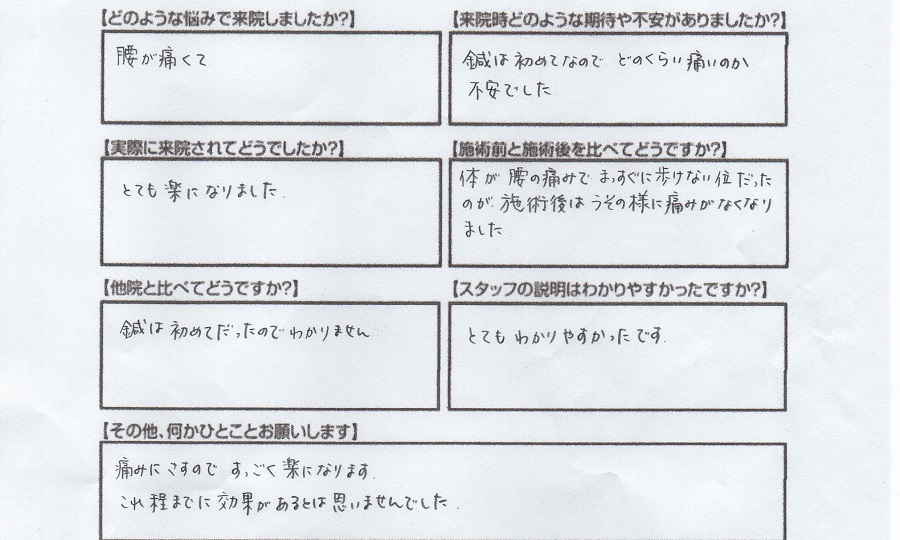 【どのような悩みで来院しましたか?】
腰が痛くて
【来院時どのような期待や不安がありましたか?】
鍼は初めてなので どのくらい痛いのか
不安でした
【実際に来院されてどうでしたか?】
とても楽になりました.
【施術前と施術後を比べてどうですか?】
体が腰の痛みでまっすぐに歩けない位だった
のが、施術後はうその様に痛みがなくなり
ました
【他院と比べてどうですか?】
鍼は初めてだったのでわかりません
【スタッフの説明はわかりやすかったですか?】
とてもわかりやすかったです.
【その他、何かひとことお願いします】
痛みにさすので すっごく楽になります.
これ程までに効果があるとは思いませんでした.